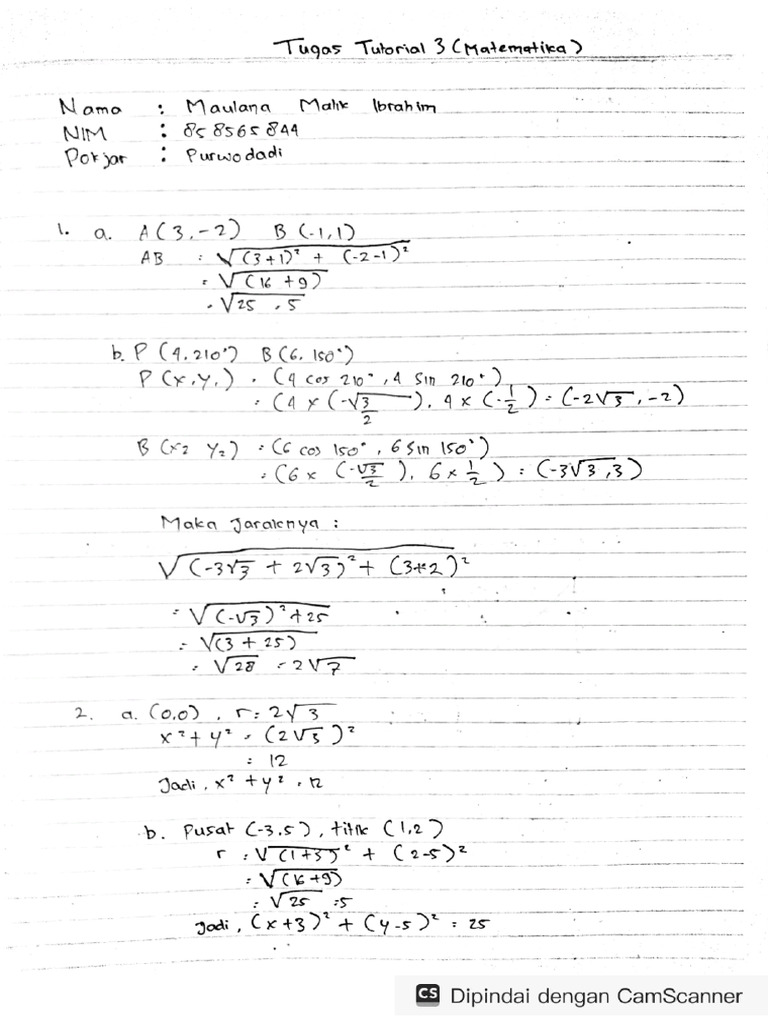 Tugas Tutorial 3 (Matematika)
Nama : Maulana Malik Ibrahim
NIM : 858565844
Pokjar : Purwodadi
1. a. A(3,-2) B(-1,1)
AB = √((3+1)² + (-2-1)²)
= √(16 + 9)
= √25 = 5
b. P (4,210°) B(6,150°)
P(x₁y₁) = (4 cos 210°, 4 sin 210°)
= (4 × (-√3/2), 4 × (-1/2) = (-2√3, -2)
B (x₂ y₂) = (6 cos 150°, 6 sin 150°)
= (6 × (-√3/2), 6 × 1/2) = (-3√3, 3)
Maka Jaraknya :
√((-3√3 + 2√3)² + (3+2)²)
= √((-√3)² + 25)
= √(3 + 25)
= √28 = 2√7
2. a. (0,0), r = 2√3
x² + y² = (2√3)²
= 12
Jadi, x² + y² = 12
b. Pusat (-3,5), titik (1,2)
r = √(1+3)² + (2-5)²
= √(16+9)
= √25 = 5
Jadi, (x+3)² + (y-5)² = 25
CS Dipindai dengan CamScanner